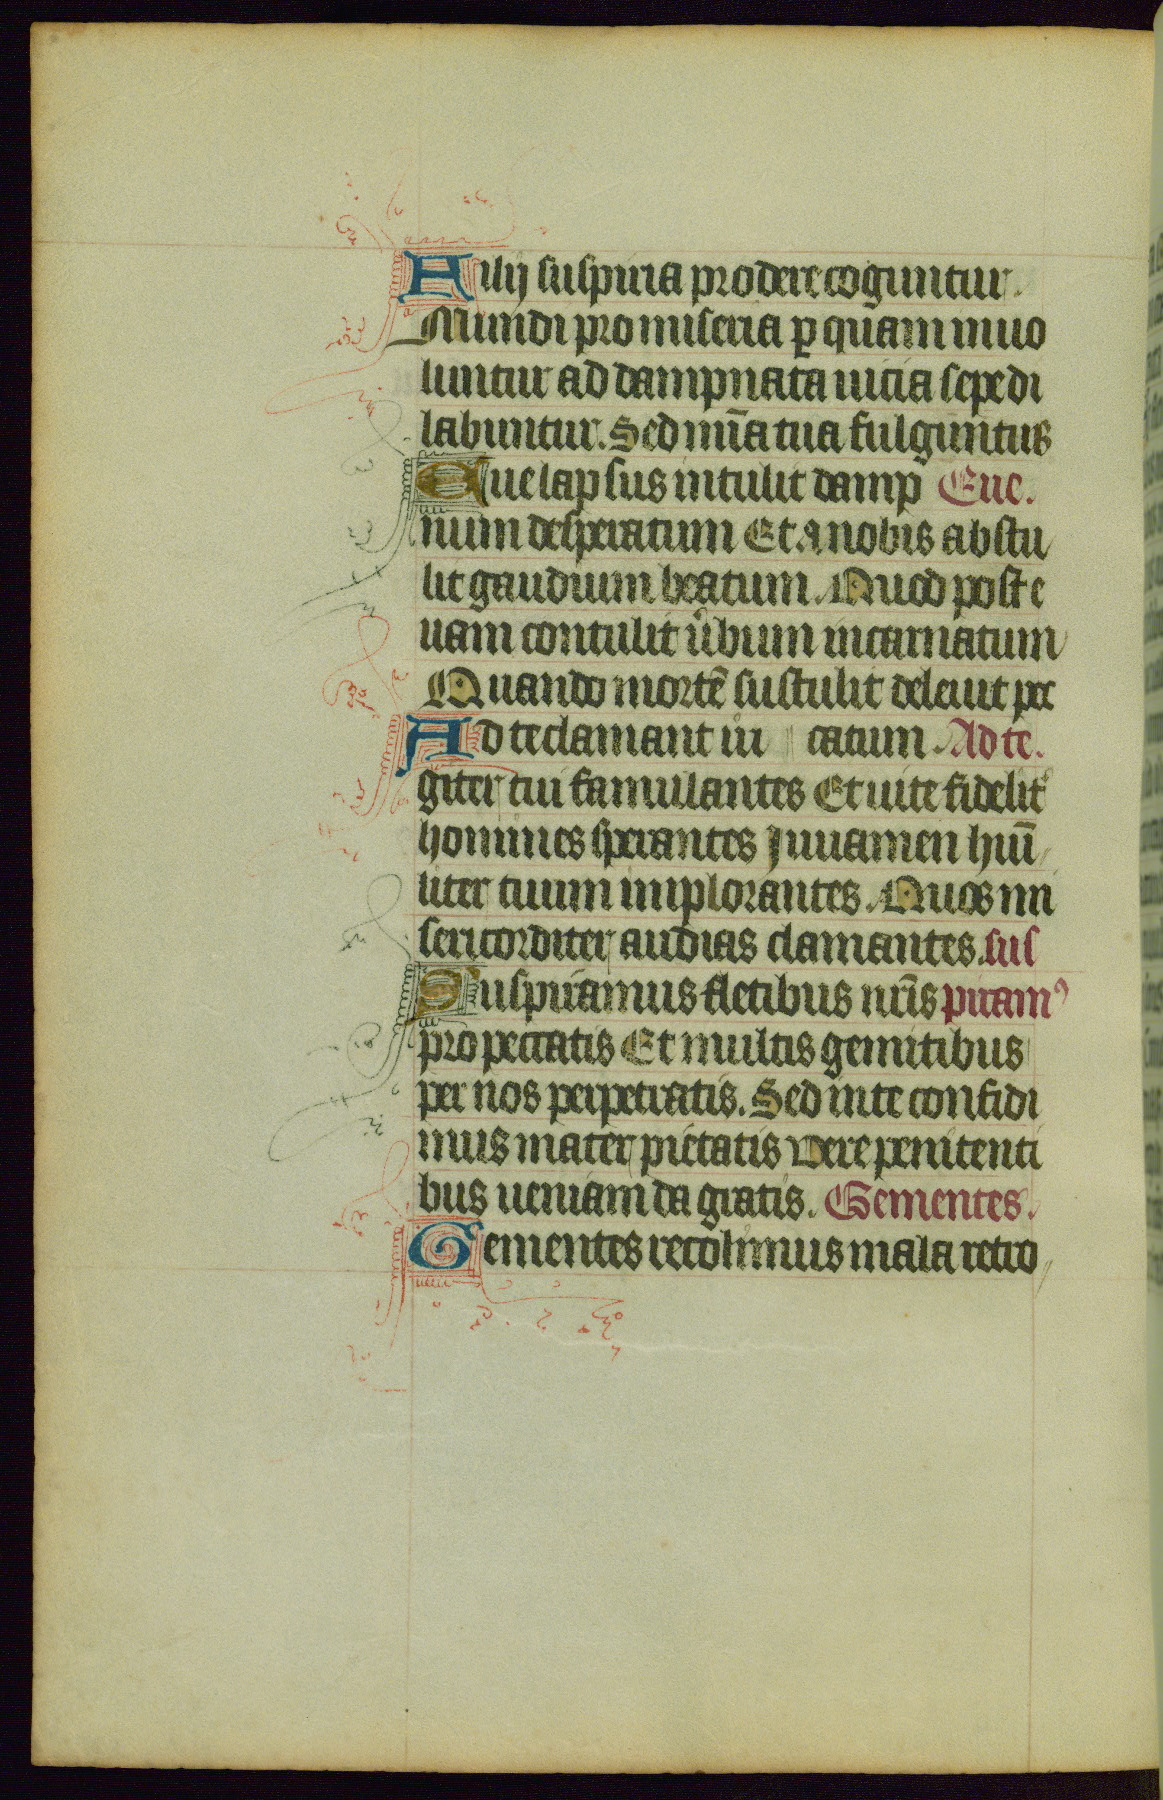 Alij suspiria prodere coguntur.
Mundi pro miseria ꝑ quam inuo
luntur ad dampnata uicia sepe di
labuntur. Sed mūa tua fulguntus
Eue lapsus intulit damp Eue.
num desperatum Et a nobis abstu
lit gaudium beatum. Quod post e
uam contulit ubium incarnatum
Quando mortē sustulit deleuit pec
Ad te clamant iu catum. Ad te.
giter tui famulantes Et uite fidelit᷑
homines sperantes Juuamen hūi
liter tuum implorantes. Quos mi
sericorditer audias clamantes. sus
Suspiramus fletibus nr̄is piramꝰ
pro peccatis Et multis gemitibus
per nos perpetratis. Sed in te confidi
mus mater pietatis Vere penitenti
bus ueniam da gratis. Gementes.
Gementes recolimus mala retro